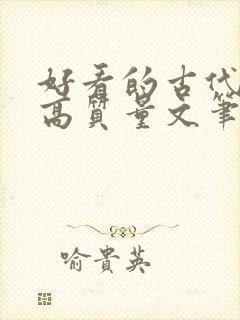 好看的古代
高质量文笔
喻貴英